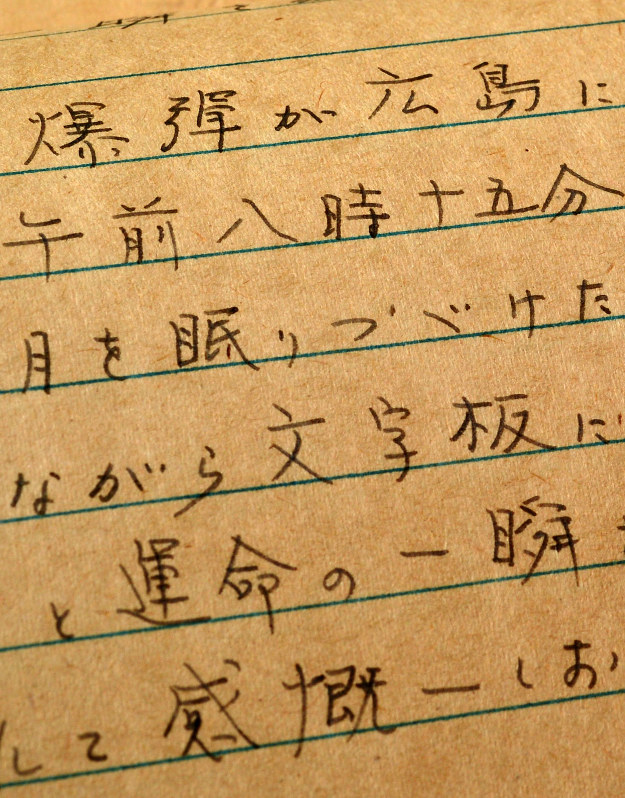 爆弾が広島に
午前八時十五分
月を眠りつづけた
ながら文字板に
と運命の一瞬
して感慨一しお